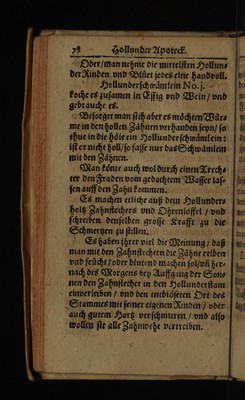 78 Hollunder Apoteck.
Oder/man nehme die mittelsten Hollun-
der Rinden und Blüet jedes eine handvoll.
Hollunderschwämlein No. j.
koche es zusamen in Essig und Wein/vnd
gebrauche es.
Besorget man sich aber es möchten Würs-
me in den hollen Zähnen verhanden seyn/so
thue in die höle ein Hollunderschwämlein:
ist er nicht holl/so fasse nur das Schwämlein
mit den Zähnen.
Man könte auch wol durch einen Trech-
ter den Fraden vom gedachtem Wasser las-
sen auff den Zahn kommen.
Es machen etliche auß dem Hollunder-
holtz Zahnstechers vnd Ohrenlöffel/vnd
schreiben denselben grosse Krafft zu die
Schmertzen zu stillen.
Es haben jhrer viel die Meinung/daß
man mit den Zahnstechern die Zähne reiben
vnd feücht/oder blutend machen sol/vñ her-
nach des Morgens bey Auffgang der Son-
nen den Zahnstecher in den Hollunderstam
einverleiben/vnd den entblösseten Ort des
Stammes mit seiner eigenen Rinden/oder
auch gutem Hartz verschmieren/vnd also
wollen sie alle Zahnwehe vertreiben.